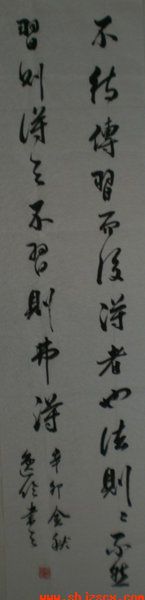 不待傳習而後得者也法則〻不然
習則得之不習則弗得
辛卯金秋
書之
www.shjzscx.com